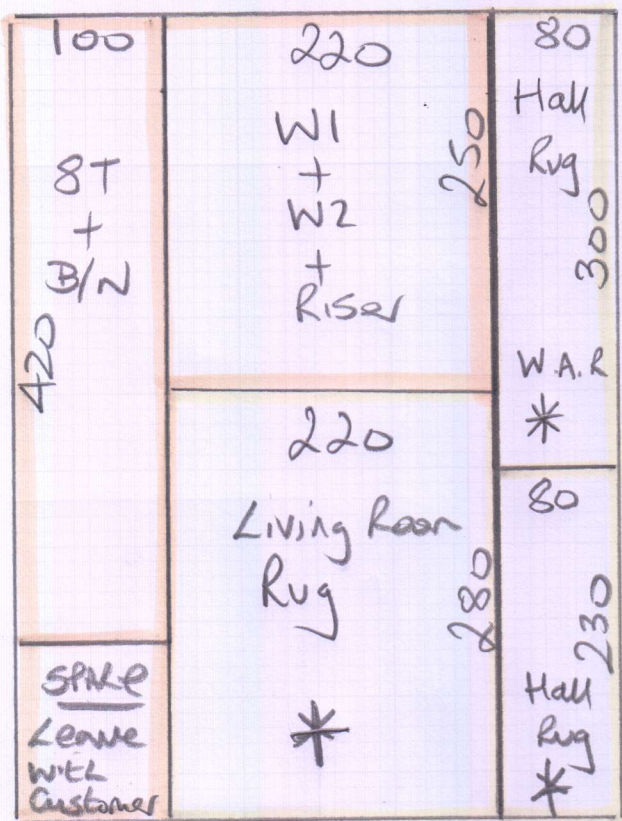 100
8T
+
B/N
420
SPARE
Leave
With
Customer
220
W1
+
W2
+
Riser
250
220
Living Room
Rug
*
280
80
Hall
Rug
300
W.A.R
*
80
230
Hall
Rug
*